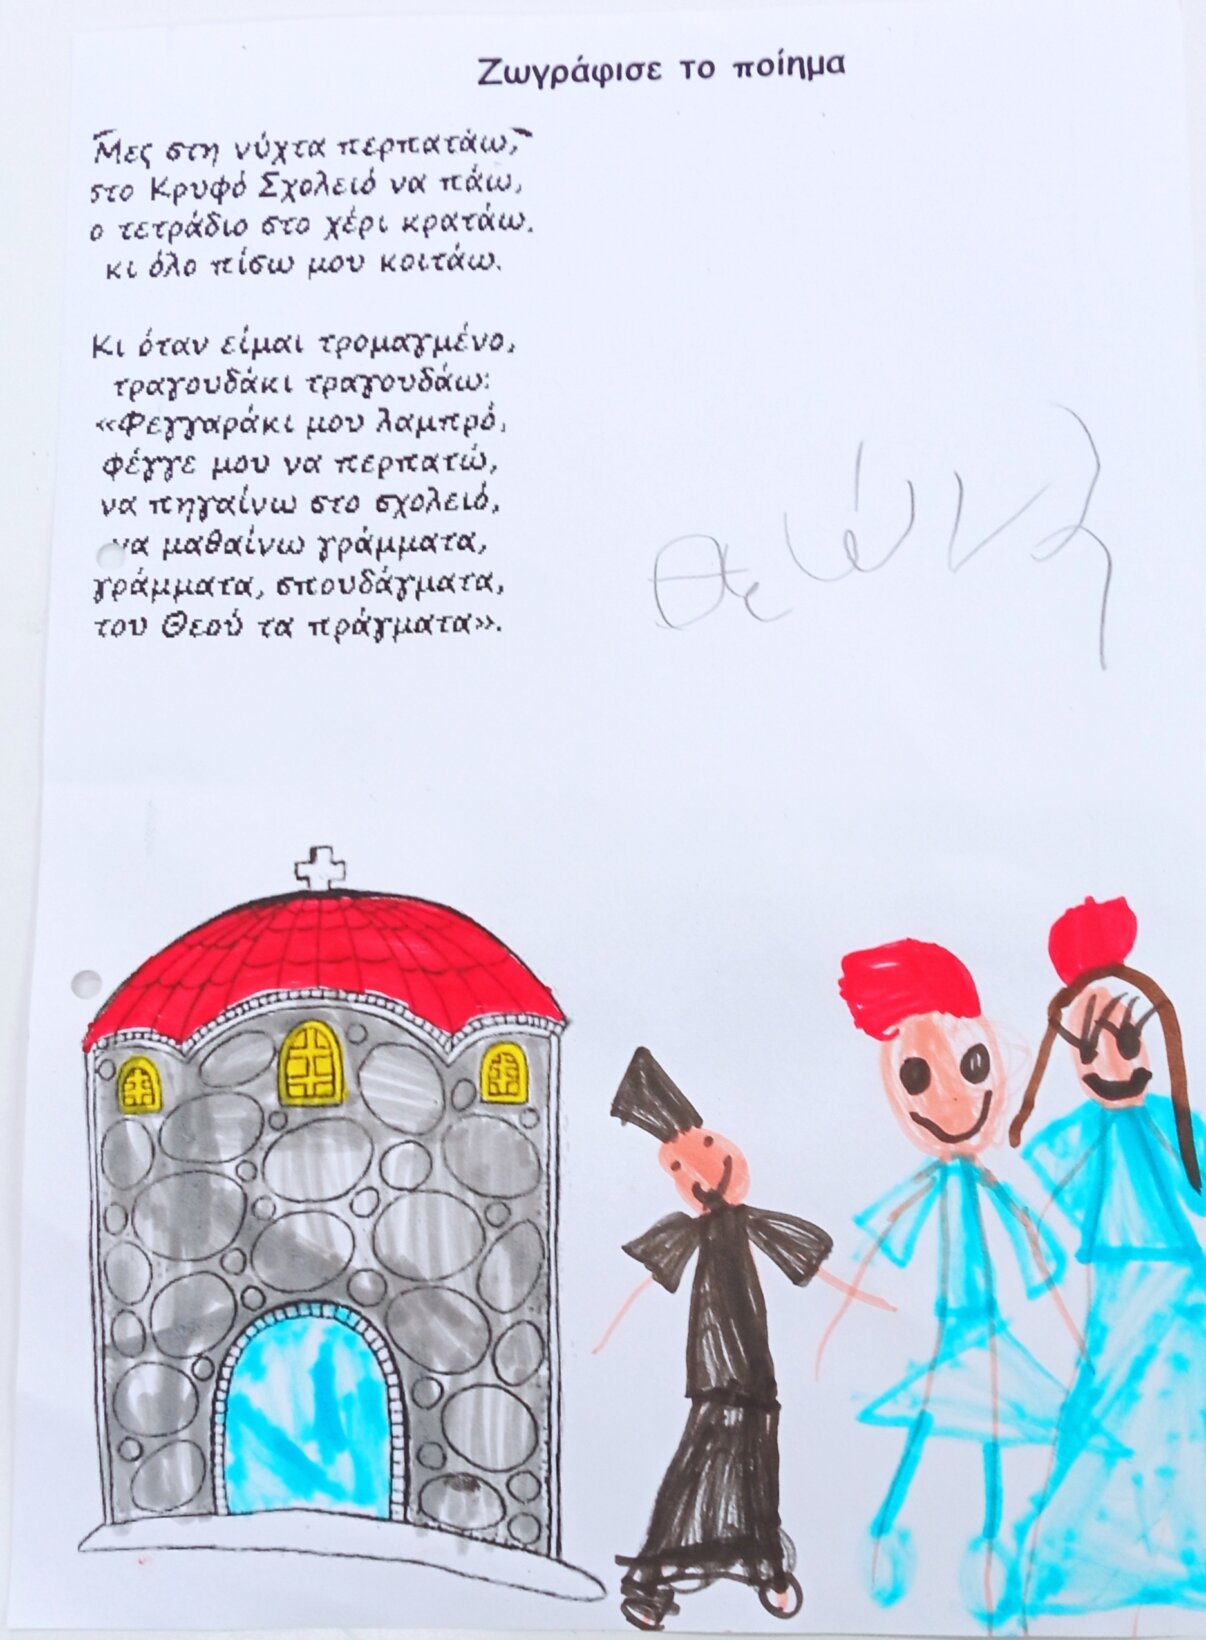 Ζωγράφισε το ποίημα
Μες στη νύχτα περπατάω,
στο Κρυφό Σχολειό να πάω,
ο τετράδιο στο χέρι κρατάω.
κι όλο πίσω μου κοιτάω.
Κι όταν είμαι τρομαγμένο,
τραγουδάκι τραγουδάω:
«Φεγγαράκι μου λαμπρό,
φέγγε μου να περπατώ,
να πηγαίνω στο σχολειό,
να μαθαίνω γράμματα,
γράμματα, σπουδάγματα,
του Θεού τα πράγματα».